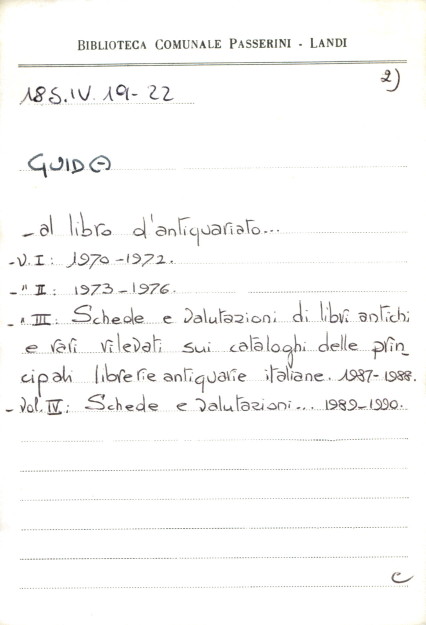 BIBLIOTECA COMUNALE PASSERINI - LANDI
2)
18S.IV.19-22
GUIDA
- al libro d'antiquariato...
- V. I: 1970-1972.
- " II: 1973-1976.
- " III: Schede e valutazioni di libri antichi
e rari rilevati sui cataloghi delle prin-
cipali librerie antiquarie italiane. 1987-1988.
- Vol. IV: Schede e valutazioni... 1989-1990.
c